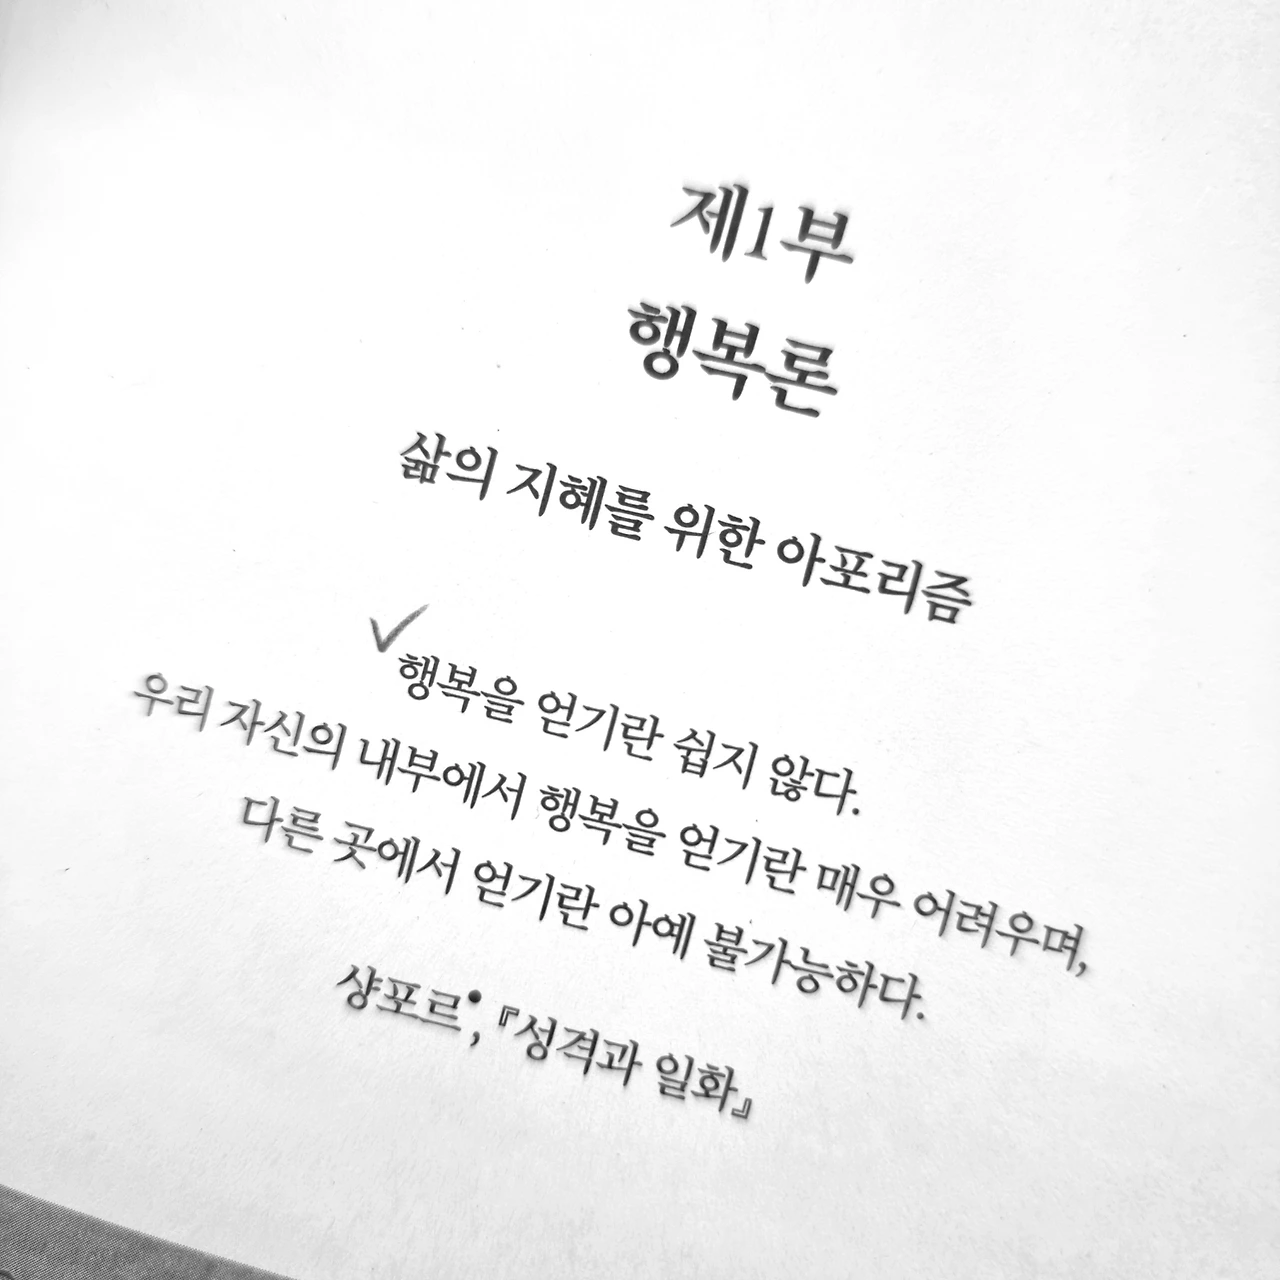 제1부
행복론
삶의 지혜를 위한 아포리즘
행복을 얻기란 쉽지 않다.
우리 자신의 내부에서 행복을 얻기란 매우 어려우며,
다른 곳에서 얻기란 아예 불가능하다.
샹포르•, 『성격과 일화』